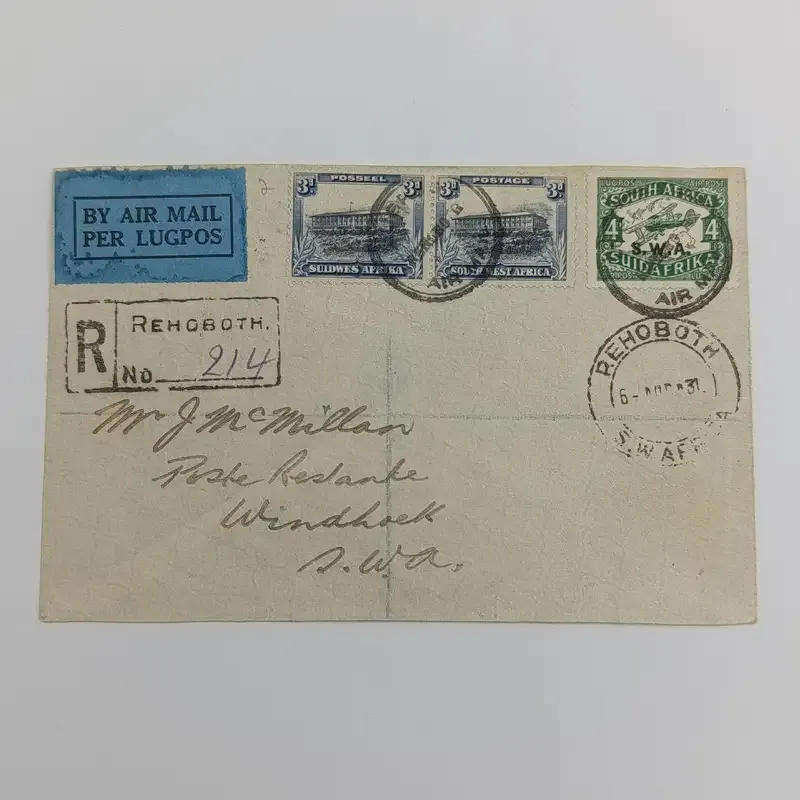 BY AIR MAIL
PER LUGPOS
POSSEEL
3d 3d
SUIDWES AFRIKA
POSTAGE
3d 3d
SOUTH WEST AFRICA
AIR
LUGPOS AIR POST
SOUTH AFRICA
4d 4d
S.W.A.
SUIDAFRIKA
AIR
R
REHOBOTH.
No 214
REHOBOTH
6- 31
S.W.AFR
Mr J McMillan
Poste Restante
Windhoek
S.W.A.